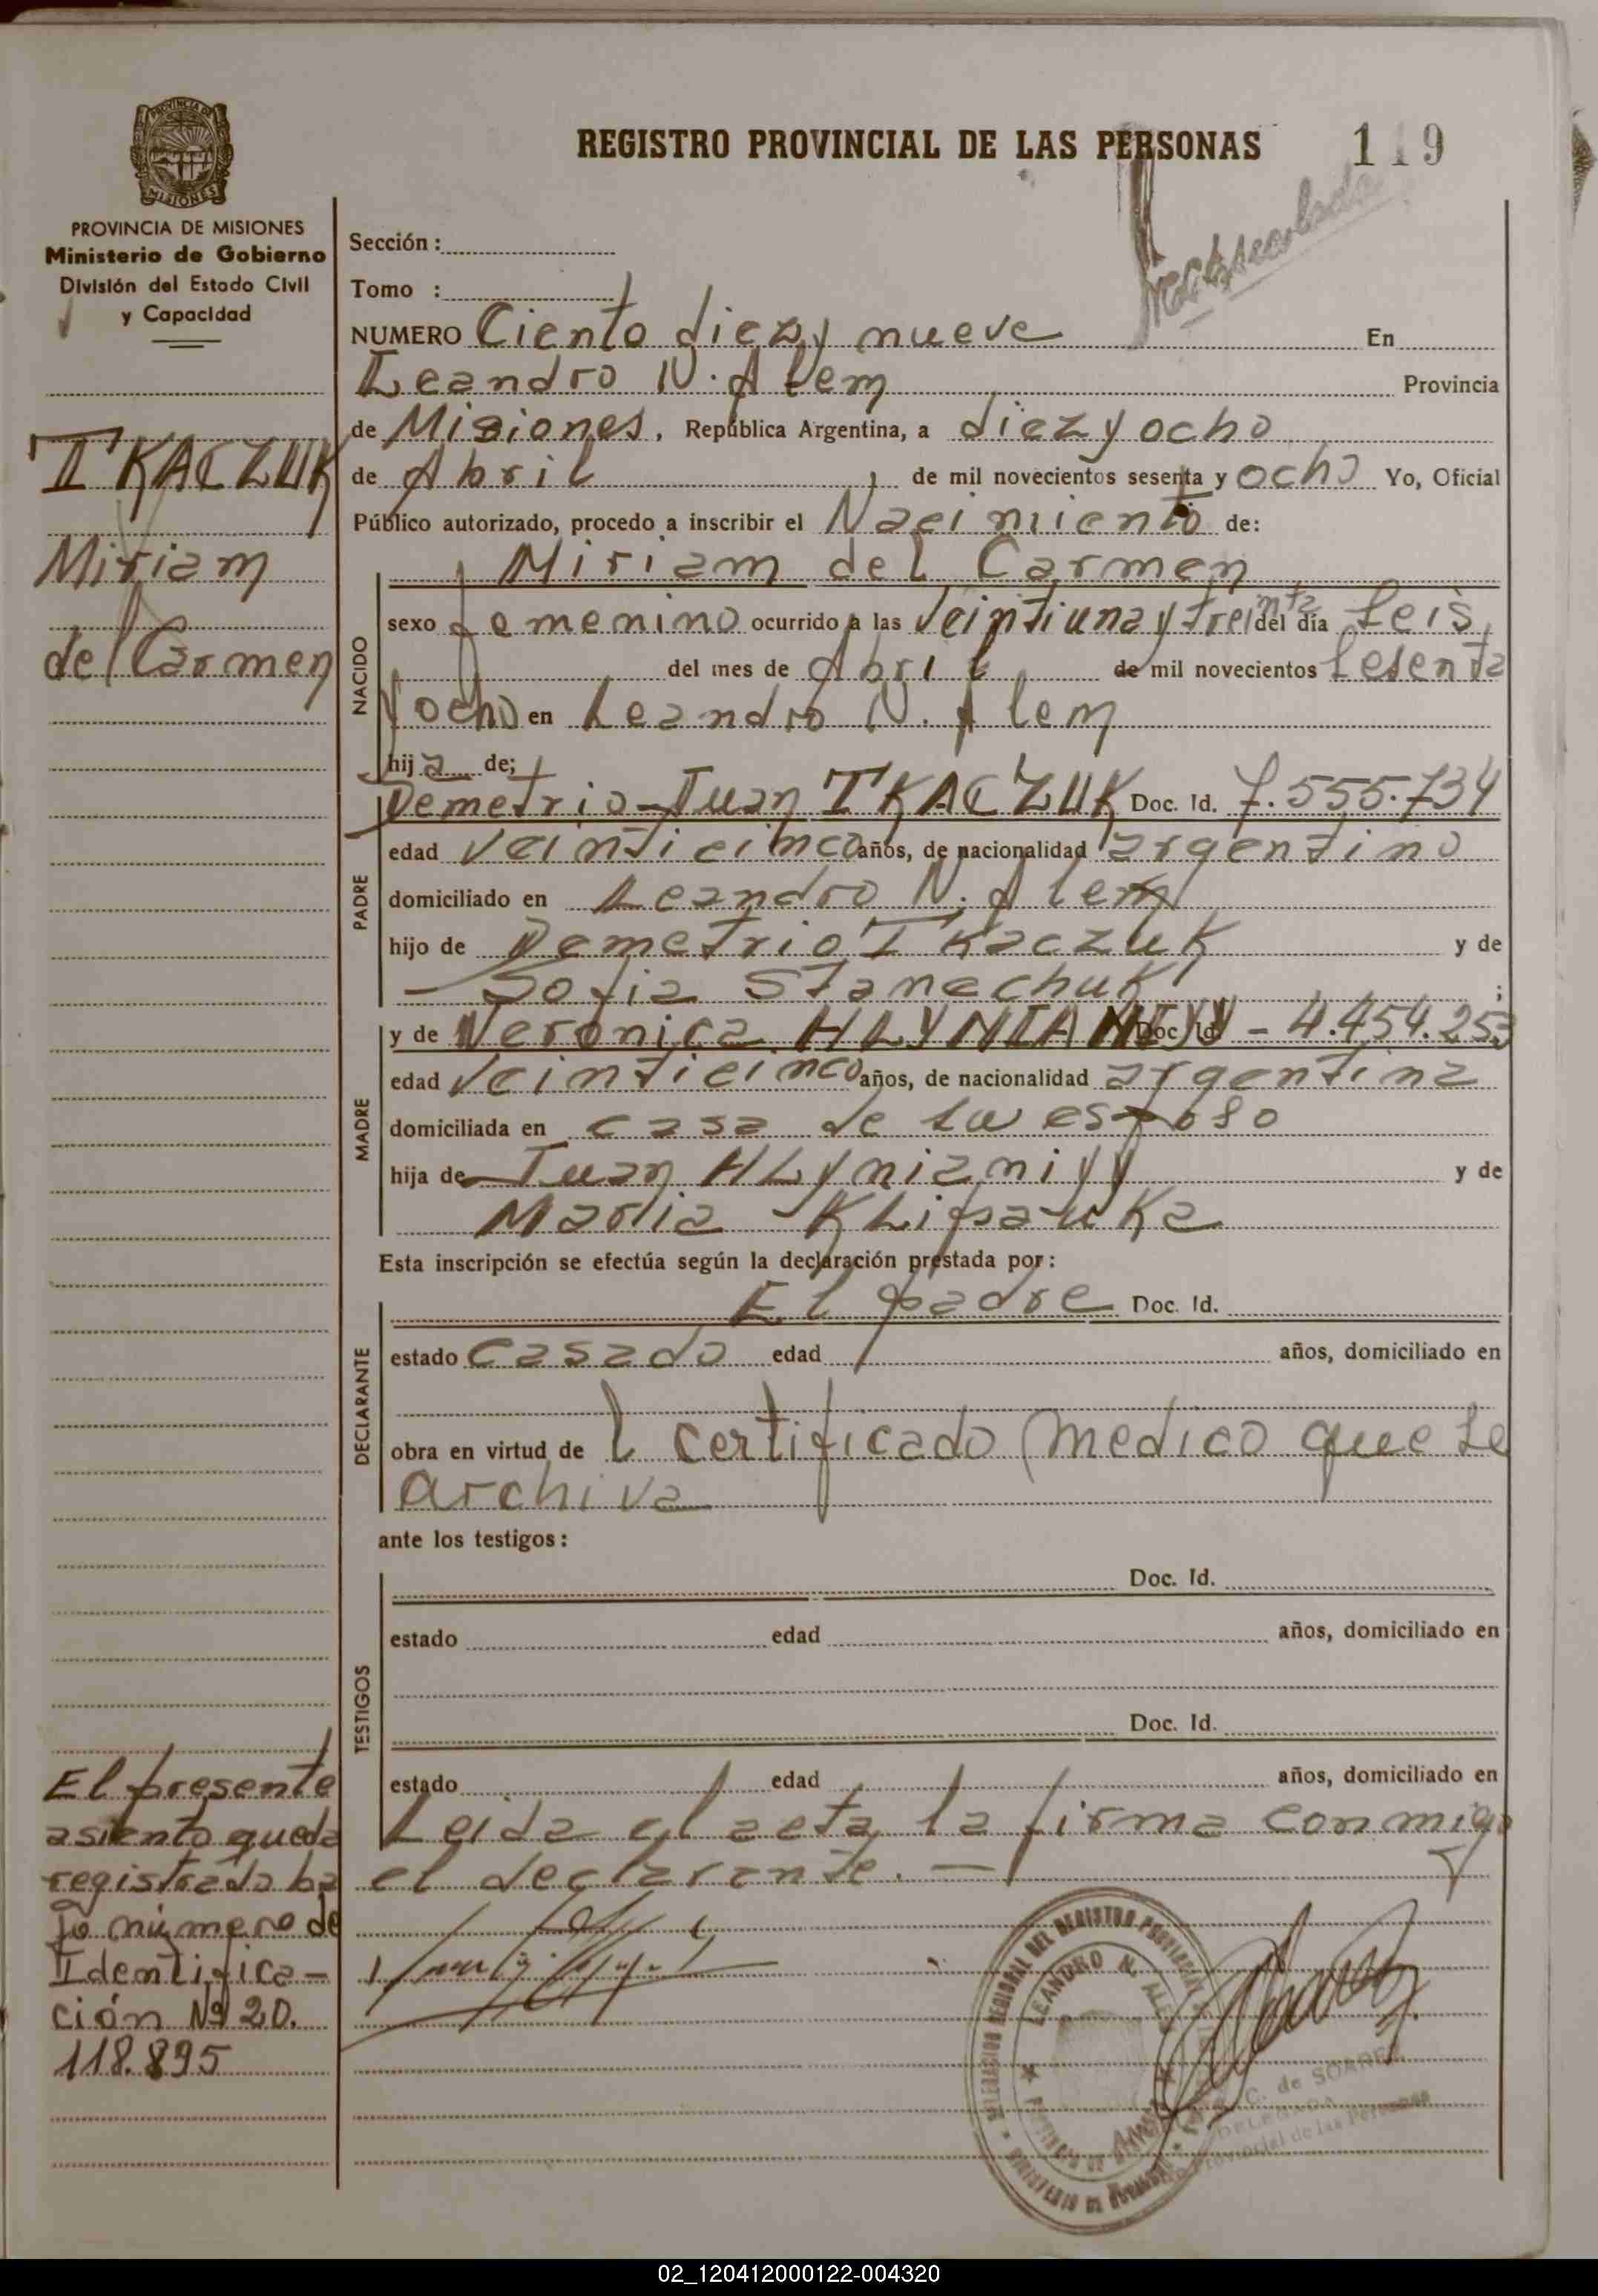 REGISTRO PROVINCIAL DE LAS PERSONAS 119
PROVINCIA DE MISIONES
Ministerio de Gobierno
División del Estado Civil
y Capacidad
TKACZUK
Miriam
del Carmen
Sección :
Tomo :
NUMERO Ciento diez y nueve En
Leandro N. Alem Provincia
de Misiones, República Argentina, a diez y ocho
de Abril, de mil novecientos sesenta y ocho Yo, Oficial
Público autorizado, procedo a inscribir el Nacimiento de:
NACIDO
Miriam del Carmen
sexo femenino ocurrido a las Veintiuna y treinta del día seis
del mes de Abril de mil novecientos sesenta
y ocho en Leandro N. Alem
hija de;
PADRE
Demetrio Juan TKACZUK Doc. Id. 7.555.734
edad Veinticinco años, de nacionalidad argentino
domiciliado en Leandro N. Alem
hijo de Demetrio Tkaczuk y de
Sofia Stanechuk ;
MADRE
y de Veronica HLYNIANIYY Doc. Id. - 4.454.253
edad Veinticinco años, de nacionalidad argentina
domiciliada en casa de su esposo
hija de Juan HLynianiyy y de
Maria KLipauka
Esta inscripción se efectúa según la declaración prestada por:
DECLARANTE
El padre Doc. Id.
estado casado edad años, domiciliado en
obra en virtud de l certificado medico que se
archiva
ante los testigos:
TESTIGOS
Doc. Id.
estado edad años, domiciliado en
Doc. Id.
estado edad años, domiciliado en
Leida el acta, la firma conmigo
el declarante. —
El presente
asiento queda
registrado ba
jo número de
Identifica-
ción Nº 20.
118.895
DELEGACION REGIONAL DEL REGISTRO PROVINCIAL
LEANDRO N. ALEM
C. de SOAREZ
DELEGADA
Provincial de las Personas
02_120412000122-004320